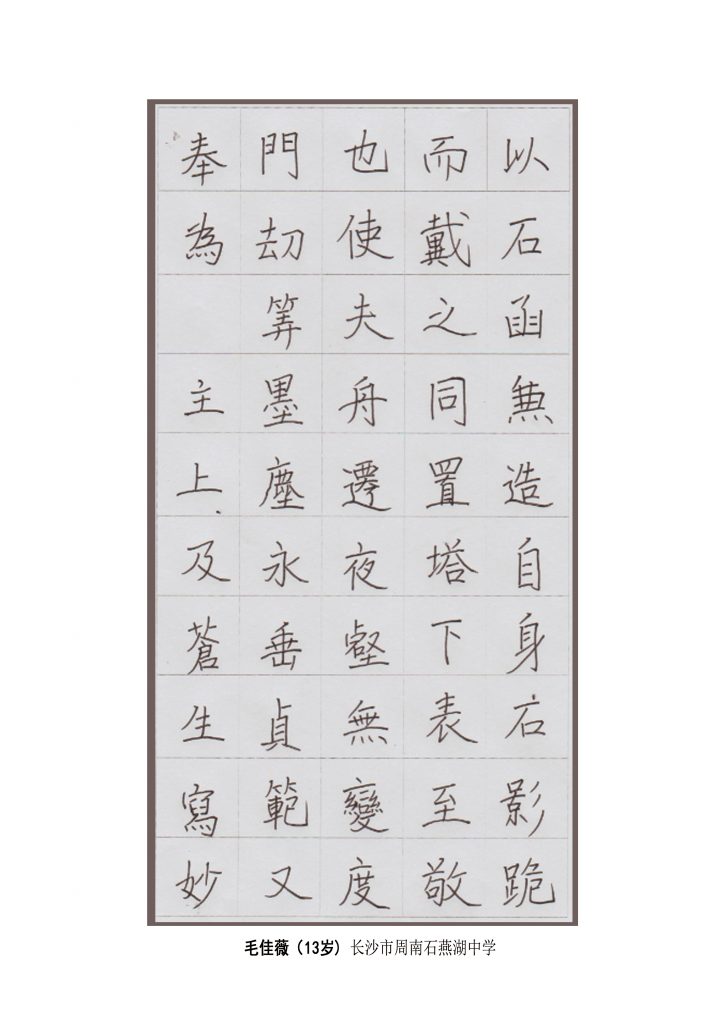 以石函兼造自身石影跪
而戴之同置塔下表至敬
也使夫舟遷夜壑無變度
門刧筭墨塵永垂貞範又
奉為 主上及蒼生寫妙
毛佳薇（13岁）长沙市周南石燕湖中学